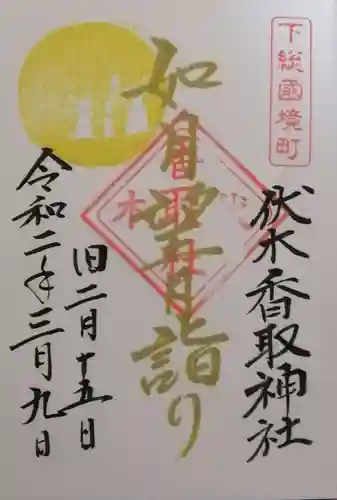 下総國境町
伏木香取神社
如月雲月詣り
旧二月十五日
令和二年三月九日